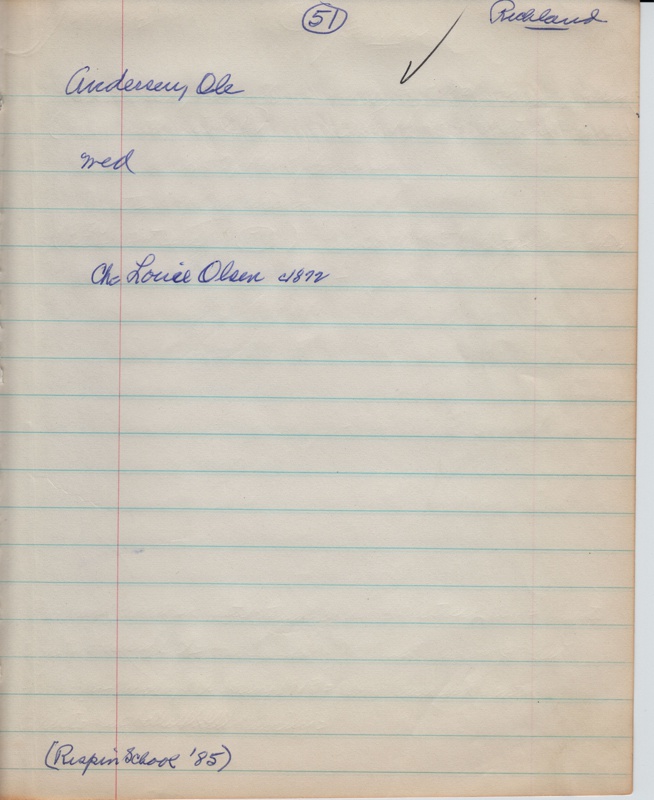 51
Richland
Andersen, Ole
med
Ch. Louise Olsen c1872
(Resp in School '85)